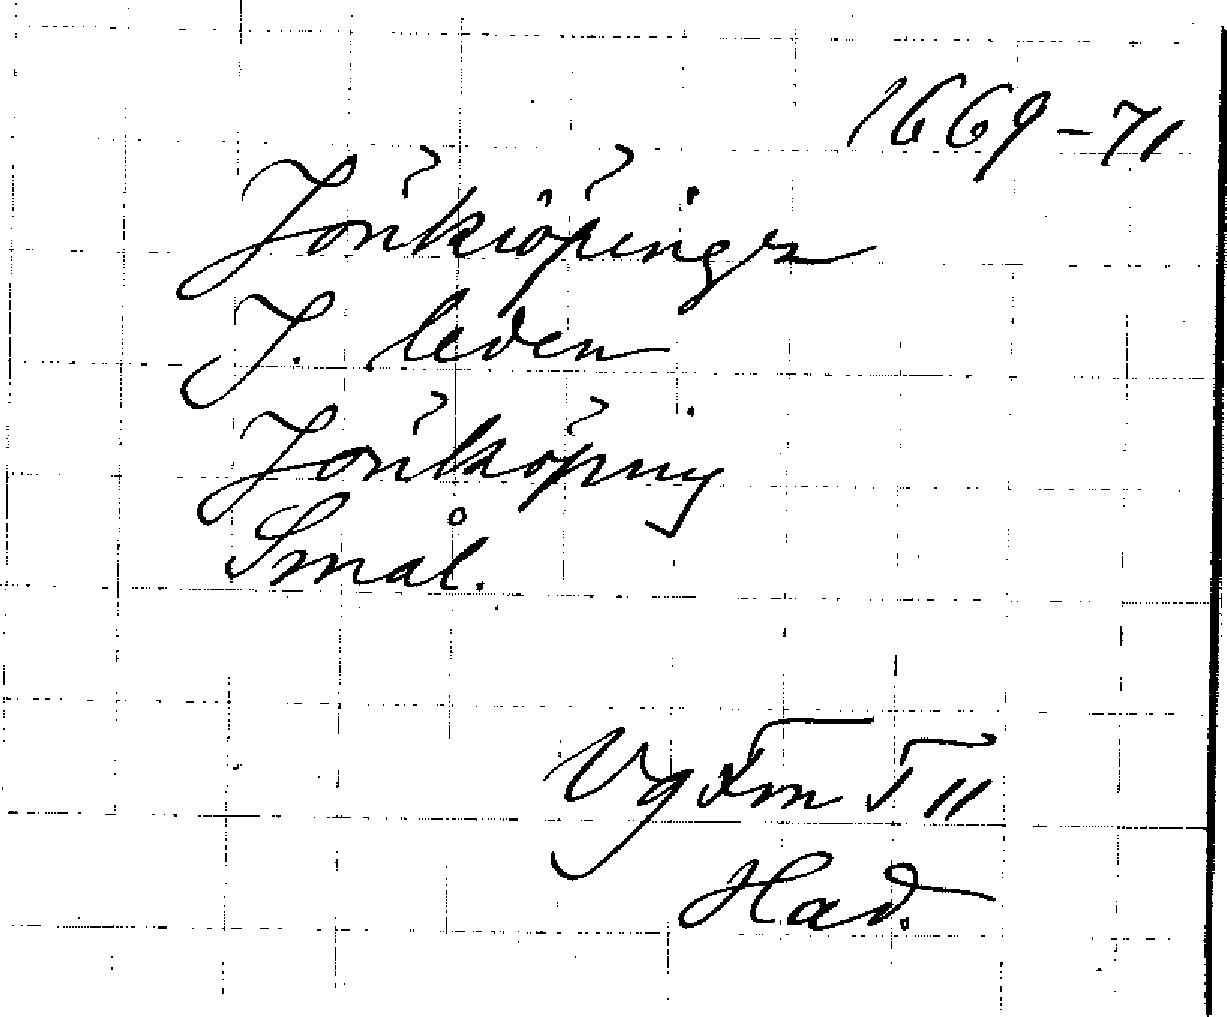 1669-71
Jönkiöpings
J. leden
Jönköping
Smål.
Vg Fm I 11
Had.